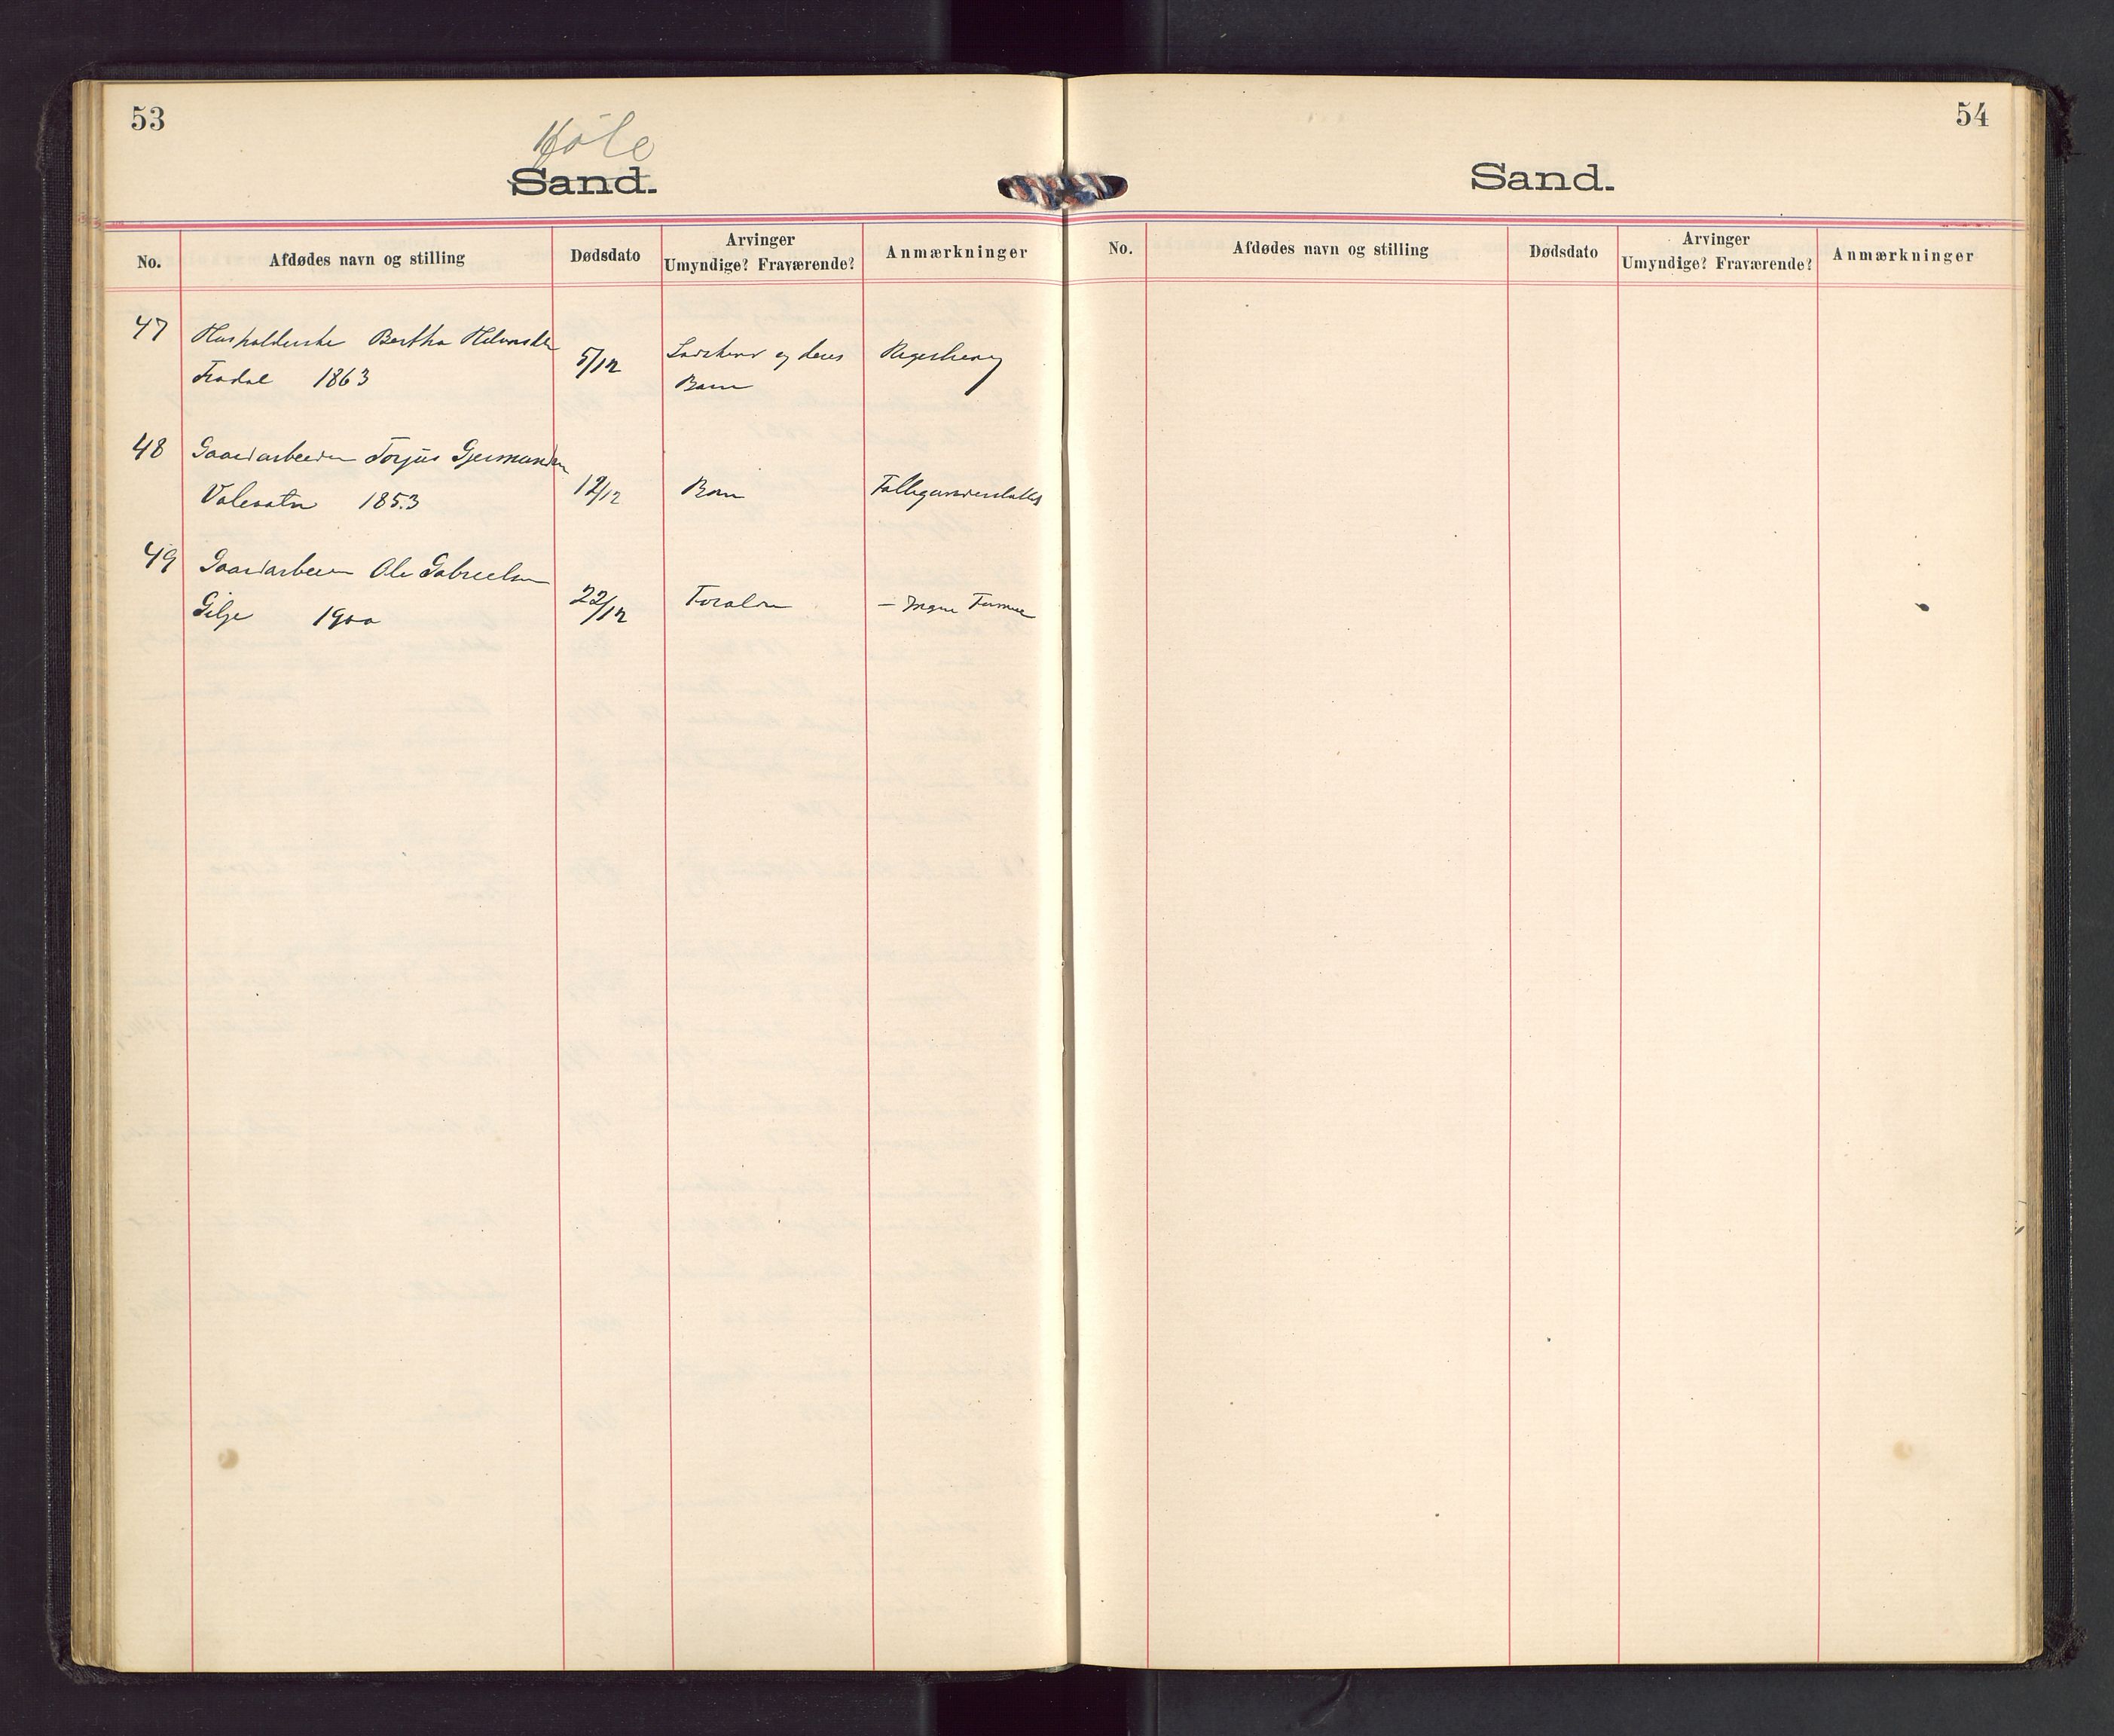 53
Høle
Sand.
No.
Afdødes navn og stilling
Dødsdato
Arvinger
Umyndige? Fraværende?
Anmærkninger
47
Husholderske Bertha
Fradal 1863
5/12
og deres
Barn
48
Gaardarbeider Torjus Gjermundsen
Valevatn 1853
12/12
Barn
49
Gaardarbeider Ole Gabrielsen
Gilje 1900
22/12
Forældre
- Ingen Formue
54
Sand.
No.
Afdødes navn og stilling
Dødsdato
Arvinger
Umyndige? Fraværende?
Anmærkninger